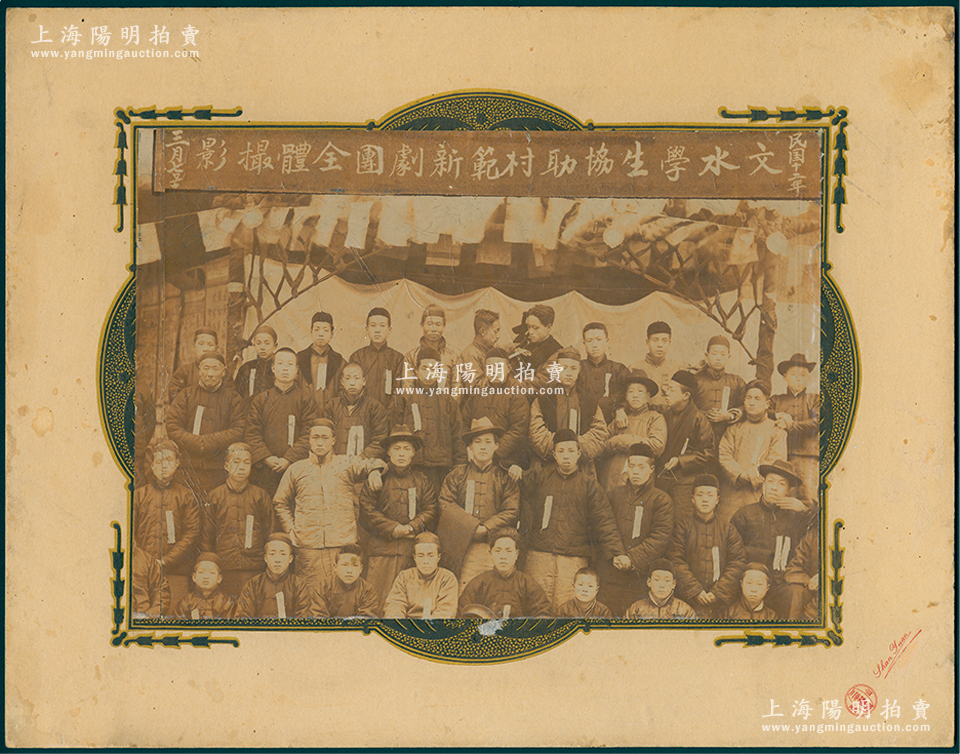 上海陽明拍賣
www.yangmingauction.com
民国十二年
文水學生協助村範新劇團全體撮影
三月
上海陽明拍賣
www.yangmingauction.com
Shan Yuan
上海陽明拍賣
www.yangmingauction.com